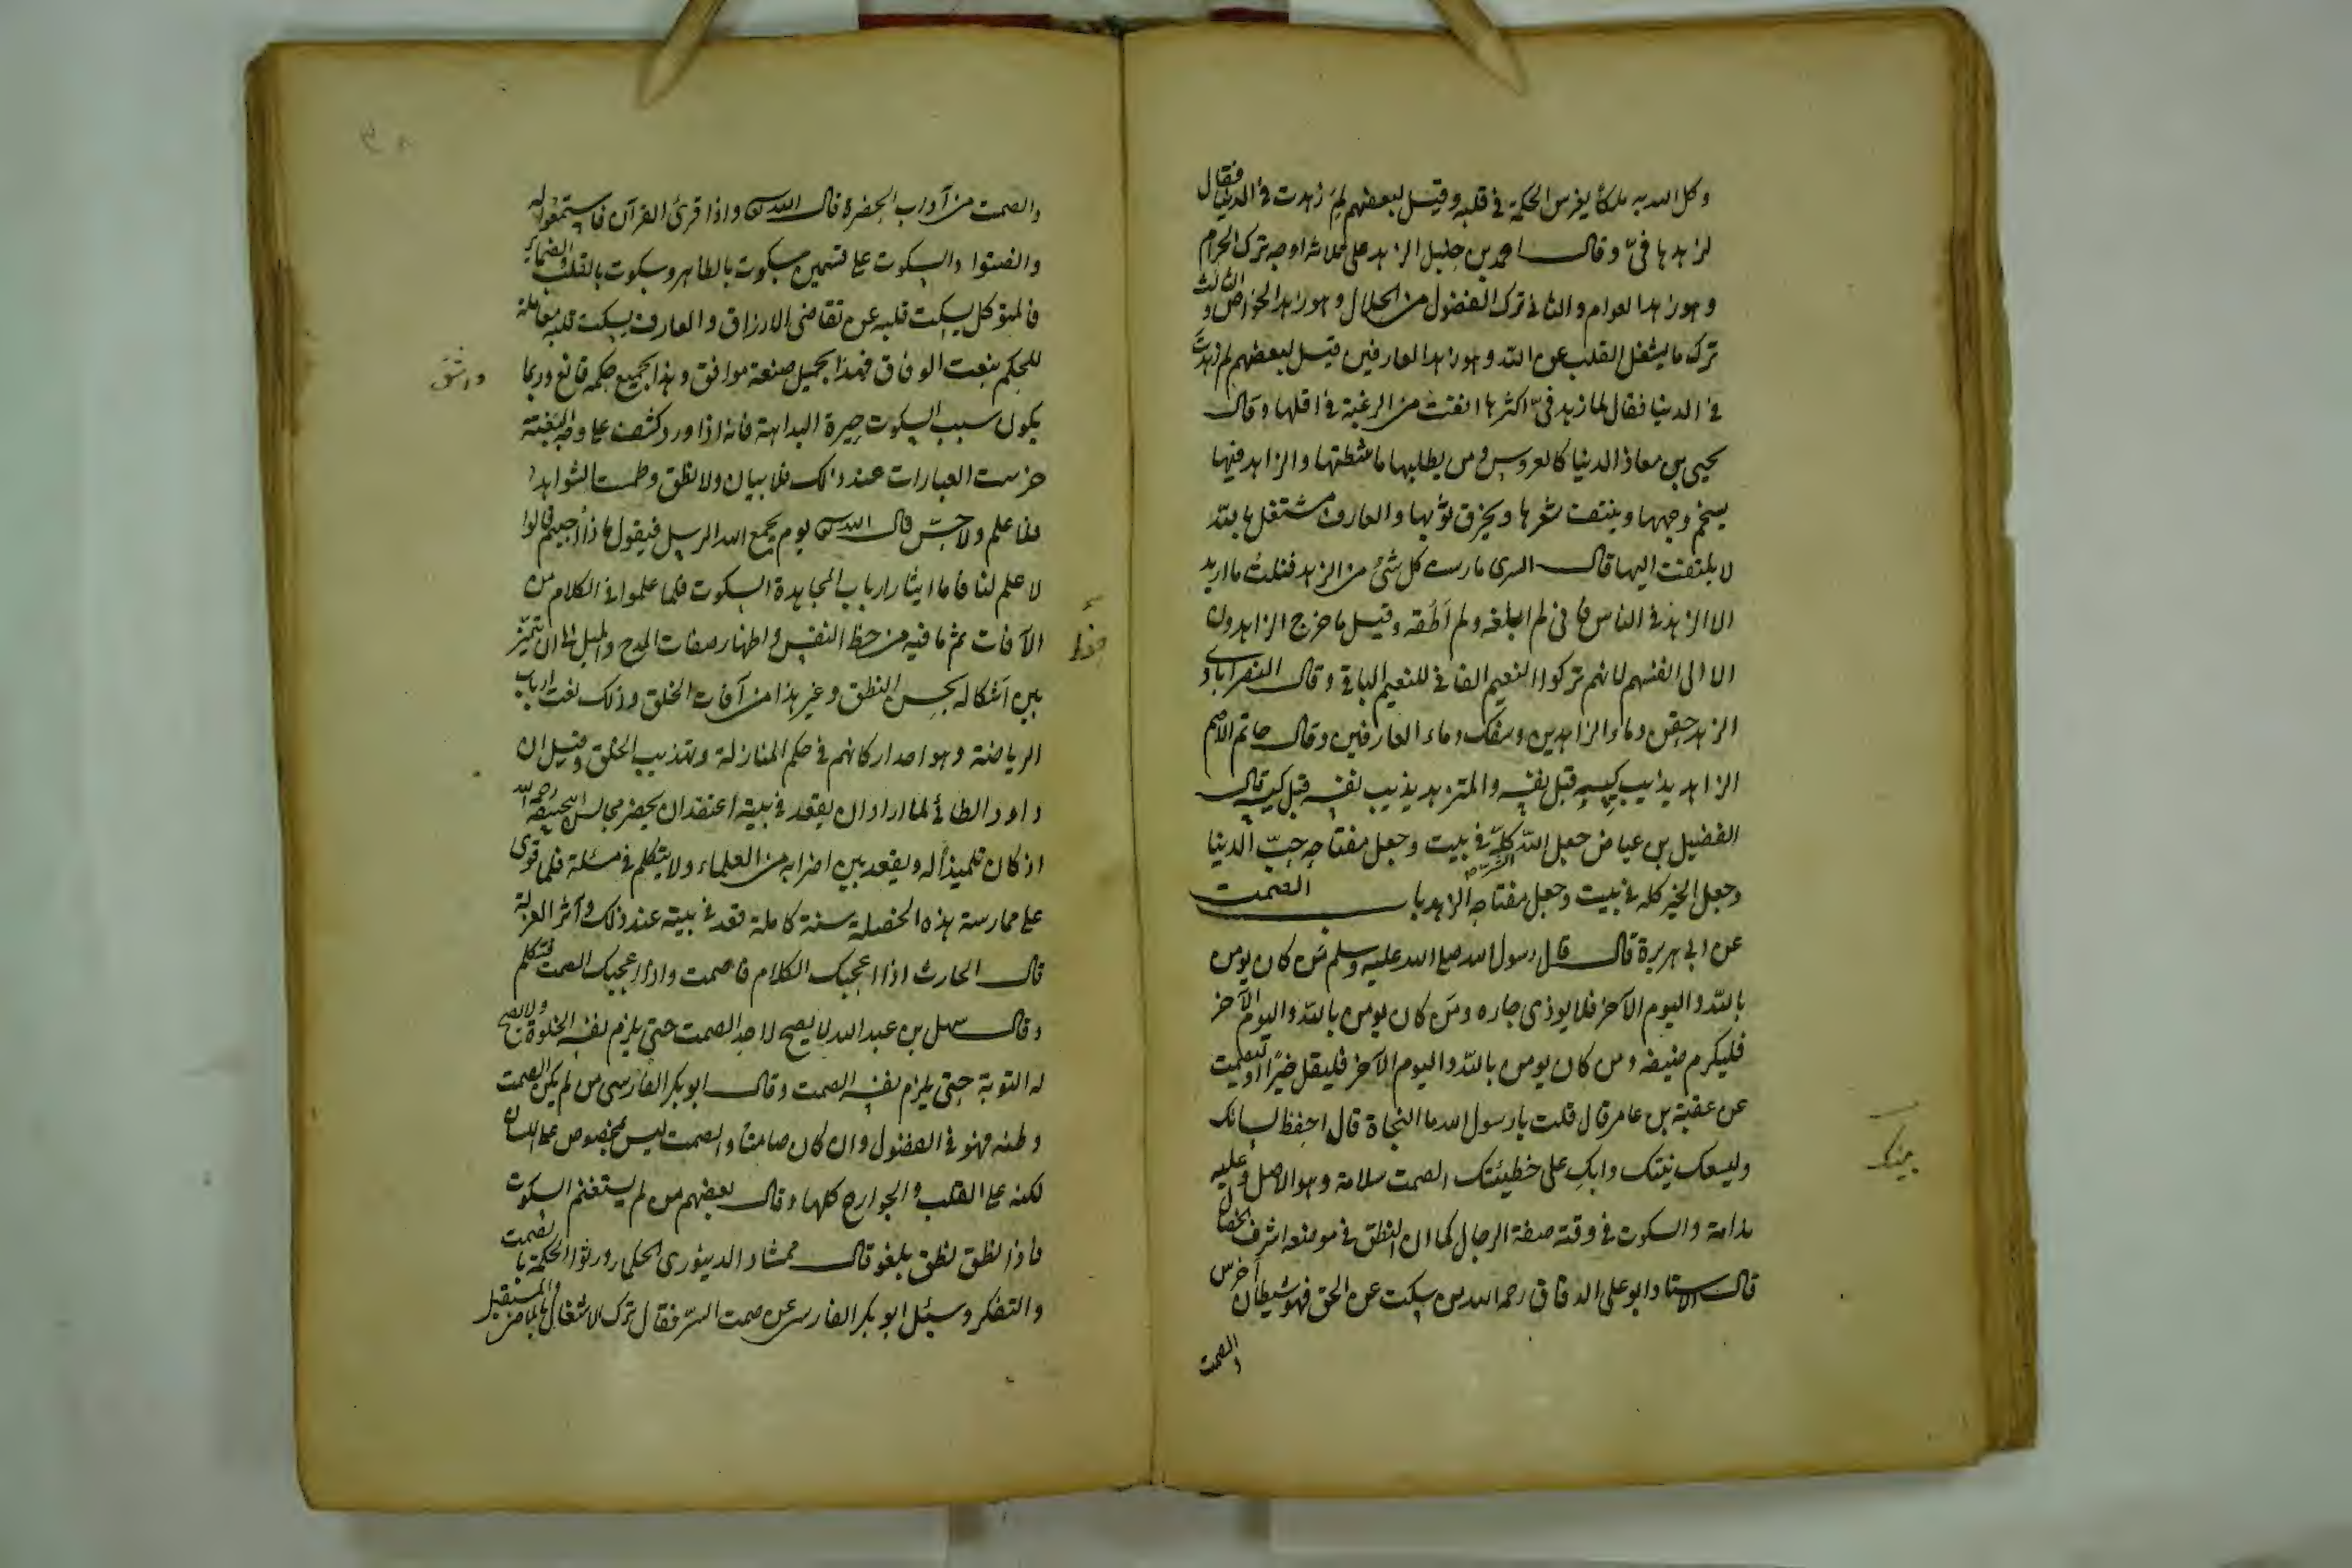 وكل الله به ملكا يغرس الحكمة في قلبه وقيل لبعضهم لم زهدت في الدنيا فقال
لزهدها فيّ وقال احمد بن حنبل الزهد على ثلاثة اوجه ترك الحرام
وهو زهد العوام والثاني ترك الفضول من الحلال وهو زهد الخواص والثالث
ترك ما يشغل القلب عن الله وهو زهد العارفين قيل لبعضهم لم زهدت
في الدنيا فقال لما زهد فيّ اكثرها انفت من الرغبة في اقلها وقال
يحيى بن معاذ الدنيا كالعروس ومن يطلبها ماشطتها والزاهد فيها
يسخم وجهها وينتف شعرها ويخرق ثوبها والعارف مشتغل بالله
لا يلتفت اليها قال السري مارست كل شئ من الزهد فنلت ما اريد
الا الزهد في الناس فاني لم ابلغه ولم اطقه وقيل ما خرج الزاهدون
الا الى انفسهم لانهم تركوا النعيم الفاني للنعيم الباقي وقال النصرابادي
الزهد حقن دماء الزاهدين وسفك دماء العارفين وقال حاتم الاصم
الزاهد يذيب كيسه قبل نفسه والمتزهد يذيب نفسه قبل كيسه قال
الفضيل بن عياض جعل الله الشر كله في بيت وجعل مفتاحه حبّ الدنيا
وجعل الخير كله في بيت وجعل مفتاحه الزهد باب الصمت
عن ابي هريرة قال قال رسول الله صلى الله عليه وسلم من كان يومن
بالله واليوم الآخر فلا يوذي جاره ومن كان يومن بالله واليوم الآخر
فليكرم ضيفه ومن كان يومن بالله واليوم الآخر فليقل خيرًا او ليصمت
عن عقبة بن عامر قال قلت يا رسول الله ما النجاة قال احفظ لسانك
وليسعك بيتك وابكِ على خطيئتك الصمت سلامة وهو الاصل وعليه
بيتك
ندامة والسكوت في وقته صفة الرجال كما ان النطق في موضعه اشرف الخصال
قال الاستاد ابو علي الدقاق رحمه الله من سكت عن الحق فهو شيطان اخرس
والصمت
والصمت من آداب الحضرة قال الله واذا قرئ القرآن فاستمعوا له
وانصتوا والسكوت على قسمين سكوت بالظاهر وسكوت بالقلب والضمائر
فالمتوكل يسكت قلبه عن تقاضي الارزاق والعارف يسكت قلبه مقابلة
للحكم بنعت الوفاق فهذا بجميل صنعه موافق وهذا بجميع حكمه قانع وربما
واثق
يكون سبب السكوت حيرة البداهة فانه اذا ورد كشف على وصف البغتة
خرست العبارات عند ذلك فلا بيان ولا نطق وطمست الشواهد
فلا علم ولا حسّ قال الله يوم يجمع الله الرسل فيقول ماذا اجبتم قالوا
لا علم لنا فاما ايثار ارباب المجاهدة السكوت فلما علموا في الكلام من
الآفات ثم ما فيه من حظ النفس واظهار صفات المدح والميل الى ان يتميز
بين اشكاله بحسن النطق وغير هذا من آفات الخلق وذلك نعت ارباب
الرياضة وهو احد اركانهم في حكم المنازلة وتهذيب الخلق وقيل ان
داود الطائي لما اراد ان يقعد في بيته اعتقد ان يحضر مجالس ابي حنيفة رحمه الله
اذ كان تلميذا له ويقعد بين اضرابه من العلماء ولا يتكلم في مسئلة فلما قوى
على ممارسة هذه الخصلة سنة كاملة قعد في بيته عند ذلك وآثر العزلة
قال الحارث اذا اعجبك الكلام فاصمت واذا اعجبك الصمت فتكلم
وقال سهل بن عبد الله لا يصح لاحد الصمت حتى يلزم نفسه الخلوة ولا يصح
له التوبة حتى يلزم نفسه الصمت وقال ابو بكر الفارسي من لم يكن الصمت
وطنه فهو في الفضول وان كان صامتا والصمت ليس بمخصوص على اللسان
لكنه على القلب والجوارح كلها وقال بعضهم من لم يستغنم السكوت
فاذا نطق نطق بلغو قال ممشاد الدينوري الحكماء ورثوا الحكمة بالصمت
والتفكر وسئل ابو بكر الفارسي عن صمت السرّ فقال ترك الاشتغال بالماضي والمستقبل